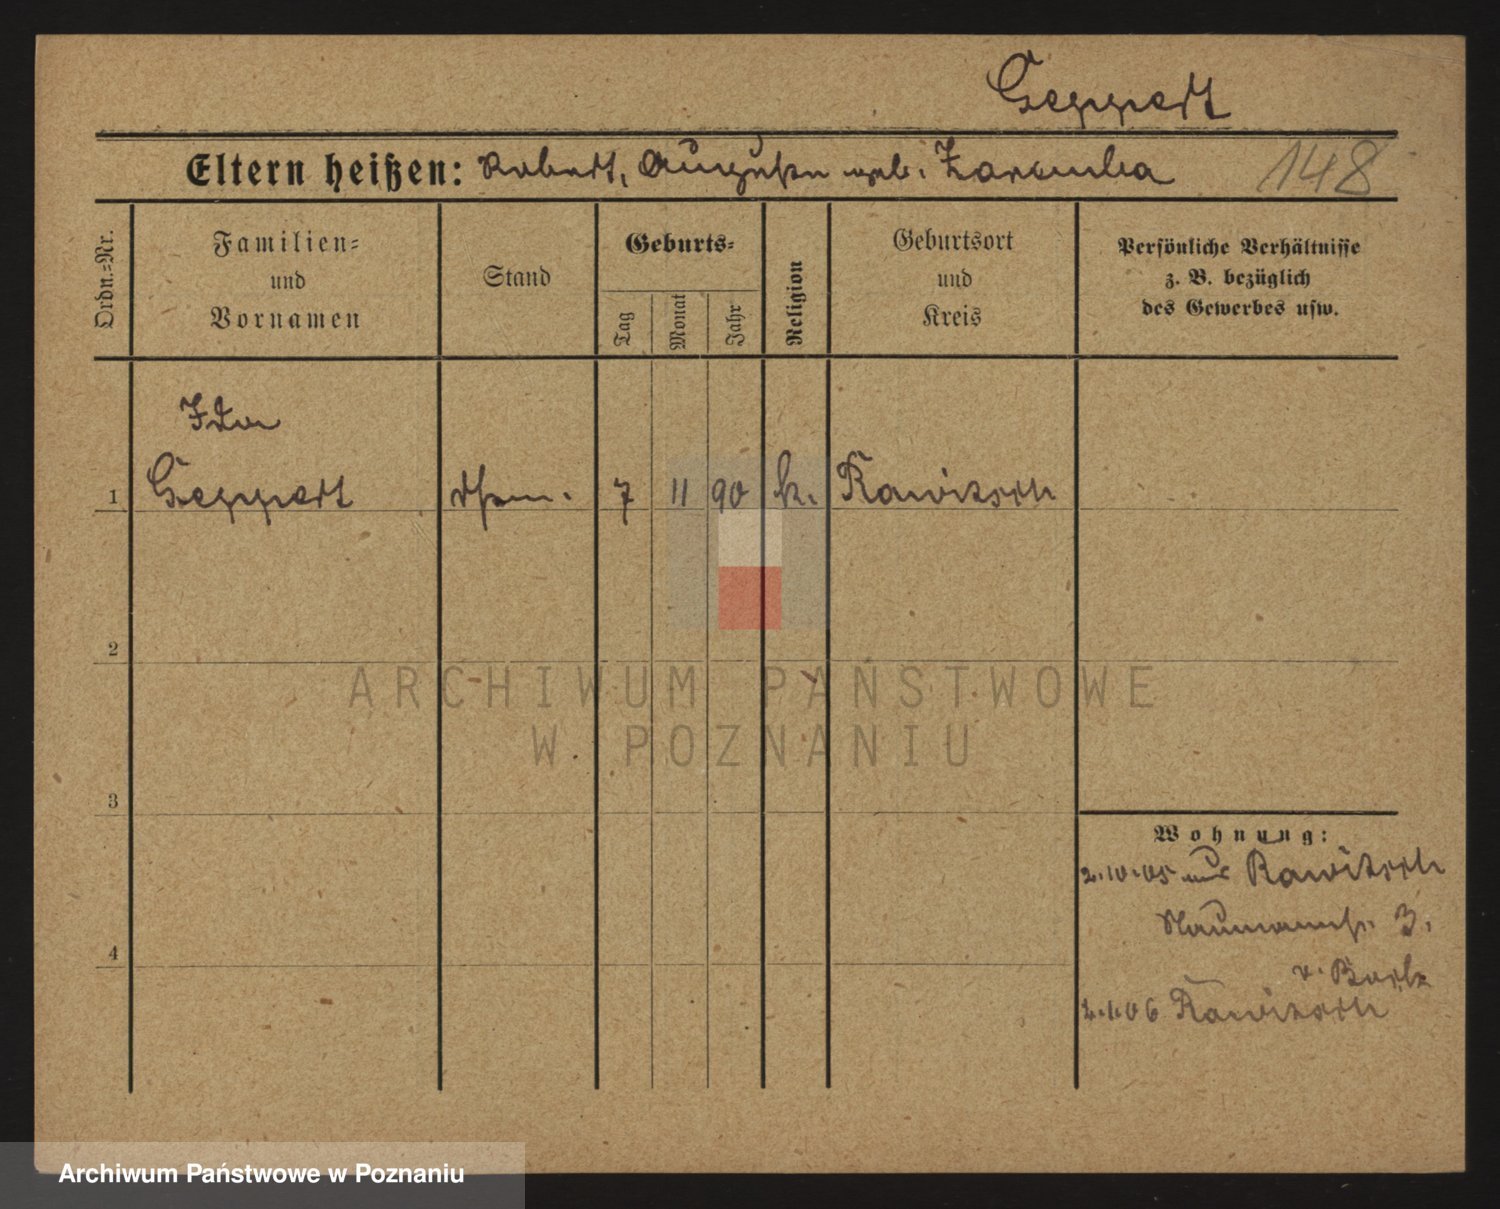 Geppert
Eltern heißen: Robert, Auguste geb. Zaremba 148
Ordn.=Nr.
Familien=
und
Vornamen
Stand
Geburts=
Tag
Monat
Jahr
Religion
Geburtsort
und
Kreis
Persönliche Verhältnisse
z. B. bezüglich
des Gewerbes usw.
Ida
1 Geppert 7 11 90 k. Rawitsch
2
3
4
Wohnung:
2.10.05 aus Rawitsch
Naumannstr. 3.
v. Bork
2.1.06 Rawitsch
ARCHIWUM PAŃSTWOWE
W POZNANIU
Archiwum Państwowe w Poznaniu